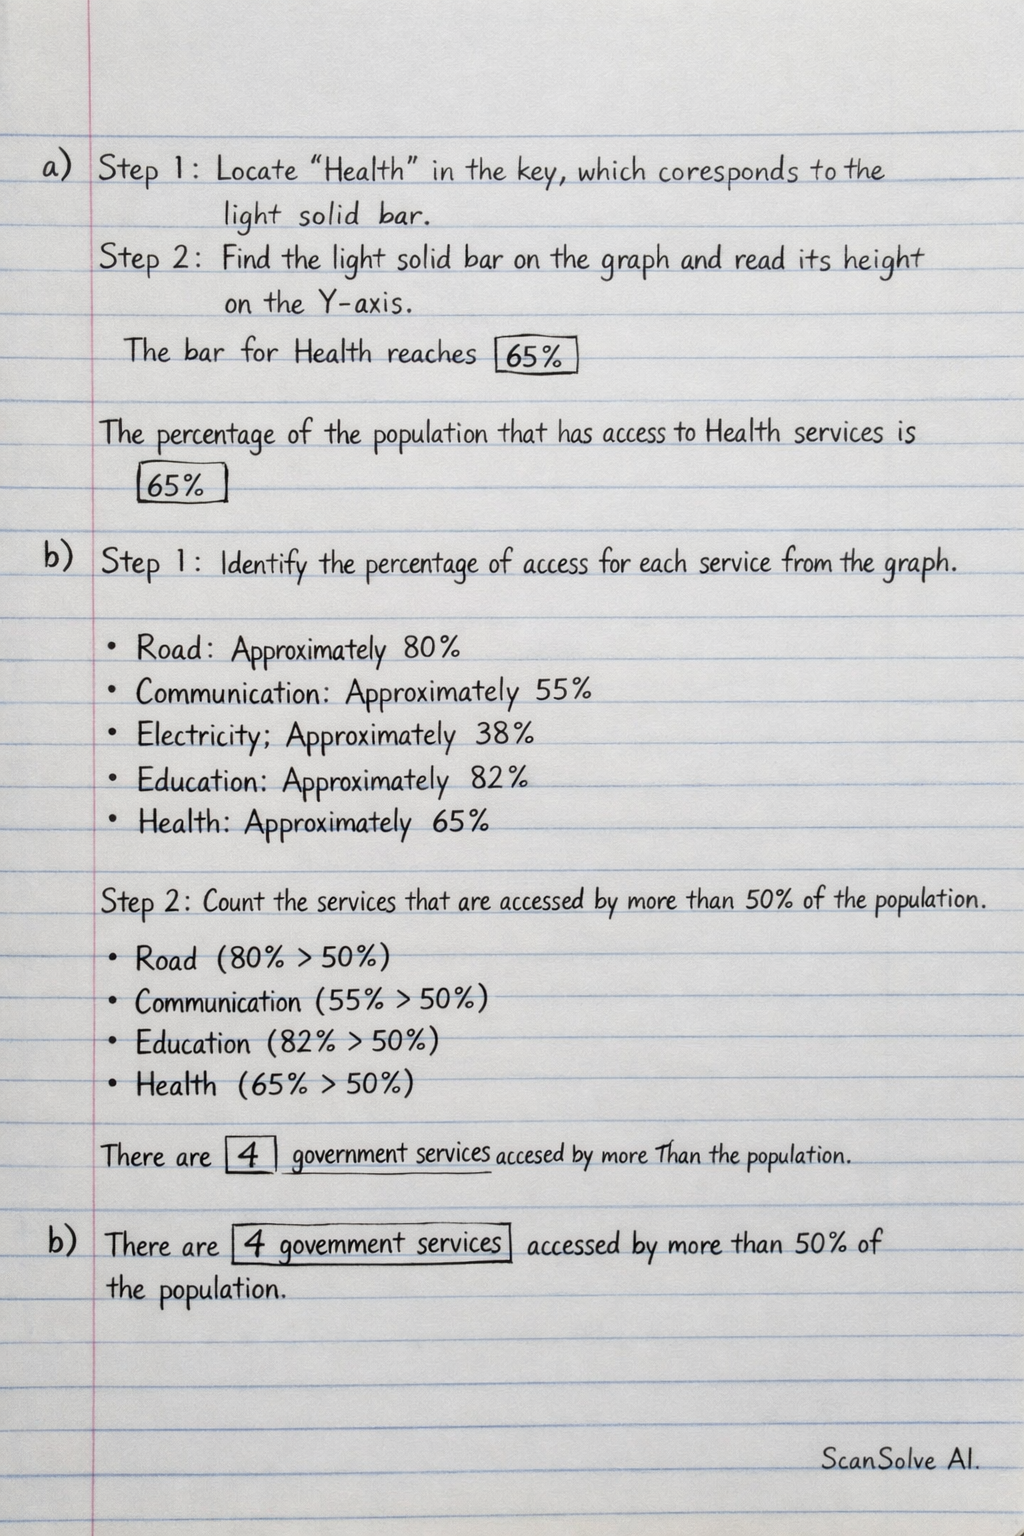 a) Step 1: Locate “Health” in the key, which coresponds to the
light solid bar.
Step 2: Find the light solid bar on the graph and read its height
on the Y-axis.
The bar for Health reaches 65%
The percentage of the population that has access to Health services is
65%
b) Step 1: Identify the percentage of access for each service from the graph.
• Road: Approximately 80%
• Communication: Approximately 55%
• Electricity; Approximately 38%
• Education: Approximately 82%
• Health: Approximately 65%
Step 2: Count the services that are accessed by more than 50% of the population.
• Road (80% > 50%)
• Communication (55% > 50%)
• Education (82% > 50%)
• Health (65% > 50%)
There are 4 government services accesed by more Than the population.
b) There are 4 govemment services accessed by more than 50% of
the population.
ScanSolve AI.